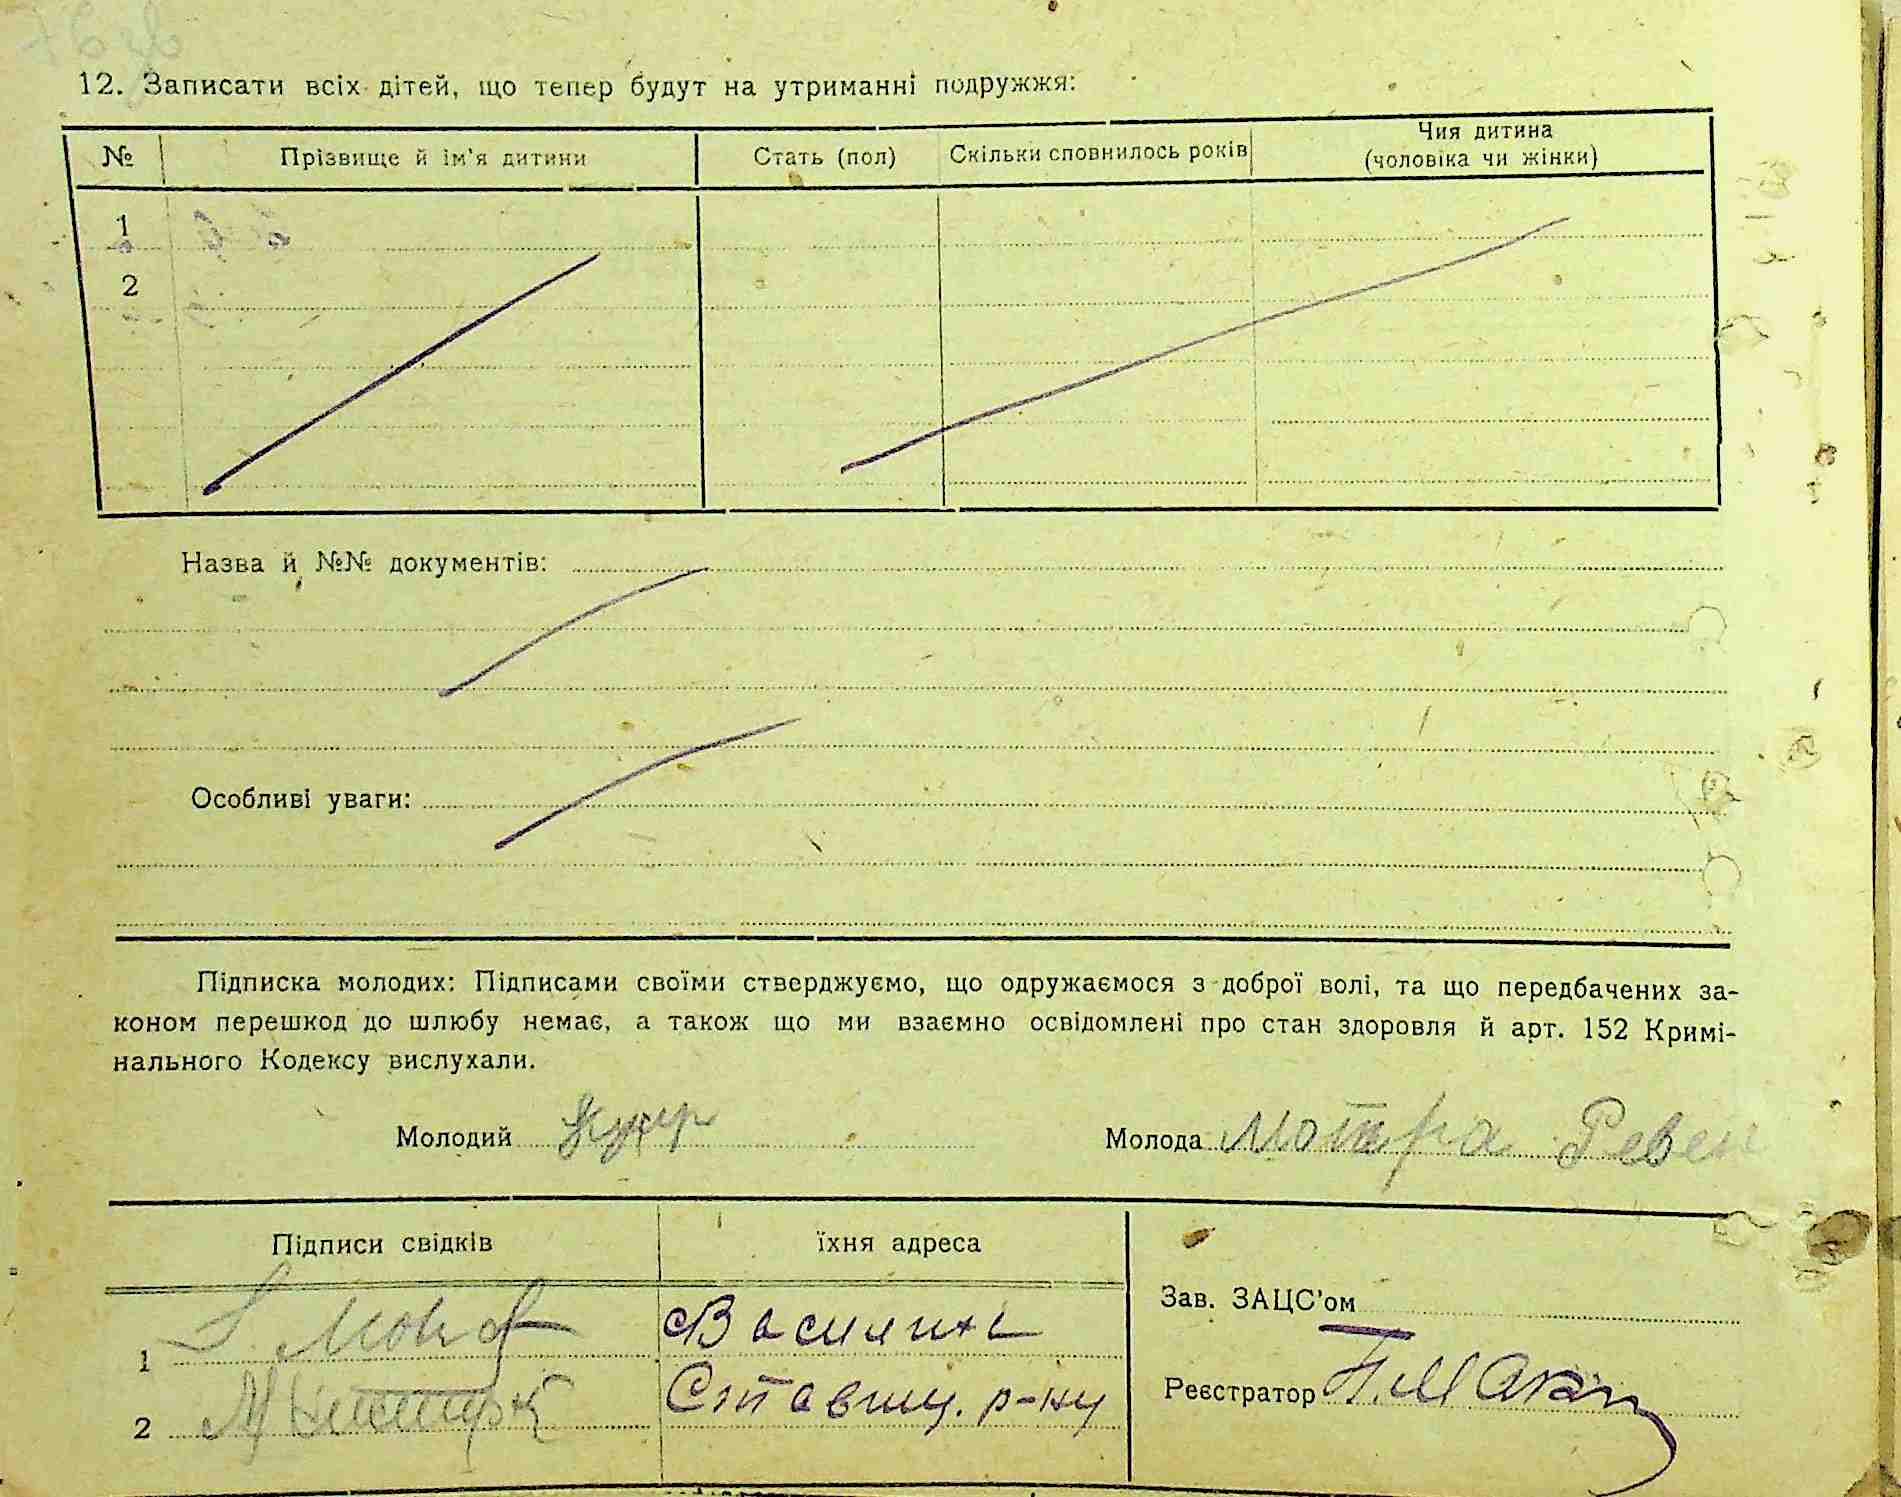 12. Записати всіх дітей, що тепер будут на утриманні подружжя:
№ Прізвище й ім'я дитини Стать (пол) Скільки сповнилось років Чия дитина (чоловіка чи жінки)
1
2
Назва й №№ документів:
Особливі уваги:
Підписка молодих: Підписами своїми стверджуємо, що одружаємося з доброї волі, та що передбачених за-
коном перешкод до шлюбу немає, а також що ми взаємно освідомлені про стан здоровля й арт. 152 Кримі-
нального Кодексу вислухали.
Молодий Молода Мотря Ревен
Підписи свідків їхня адреса
Зав. ЗАЦС'ом
1 Василих
2 Ставищ. р-ну
Реєстратор